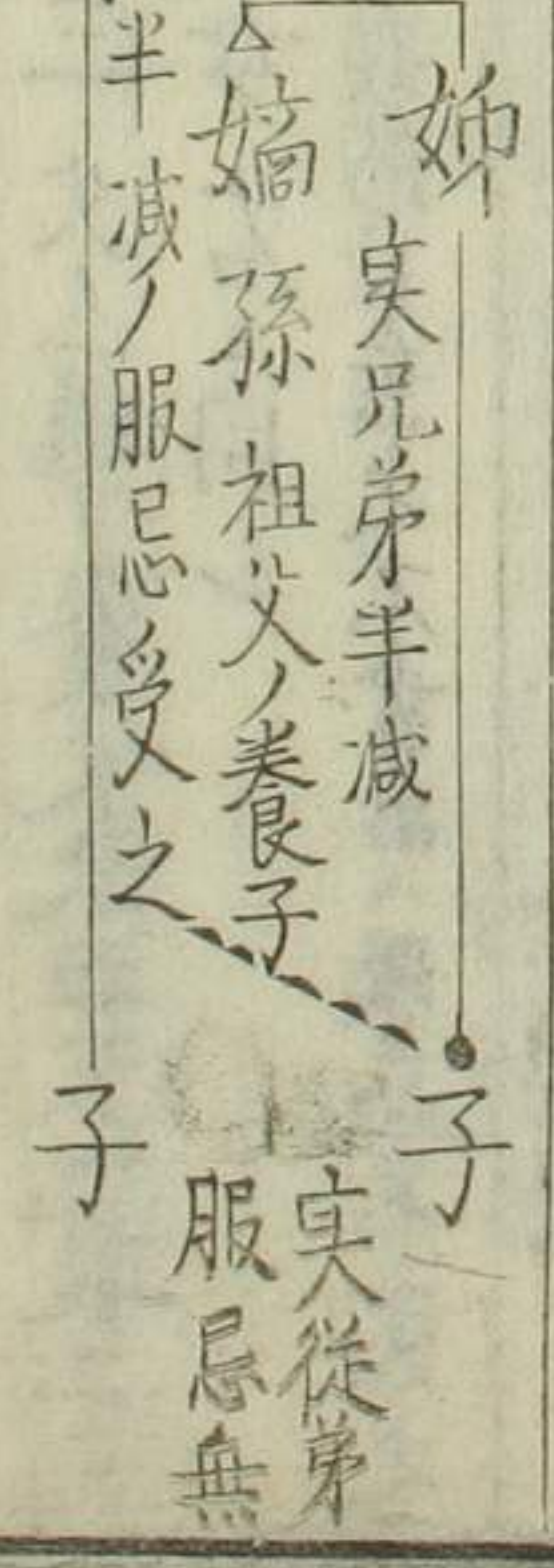 姉
実兄弟半减
嫡孫祖父ノ養子
半减ノ服忌受之
子
実従弟
服忌無
子